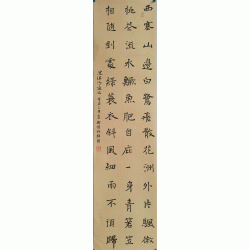 西塞山邊白鷺飛散花洲外片颿微
桃花流水鱖魚肥自庇一身青箬笠
相隨到處綠蓑衣斜風細雨不須歸